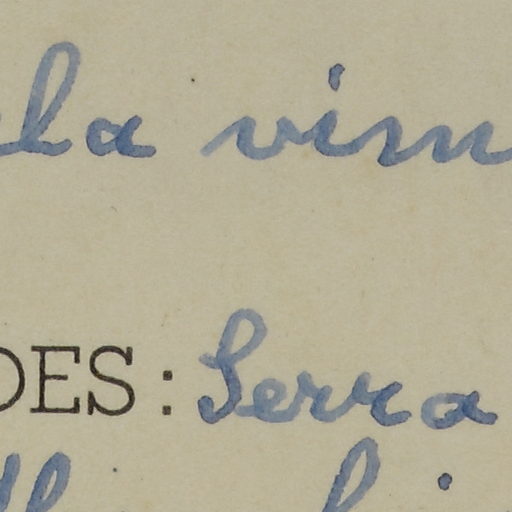 la vim
DES: Serra